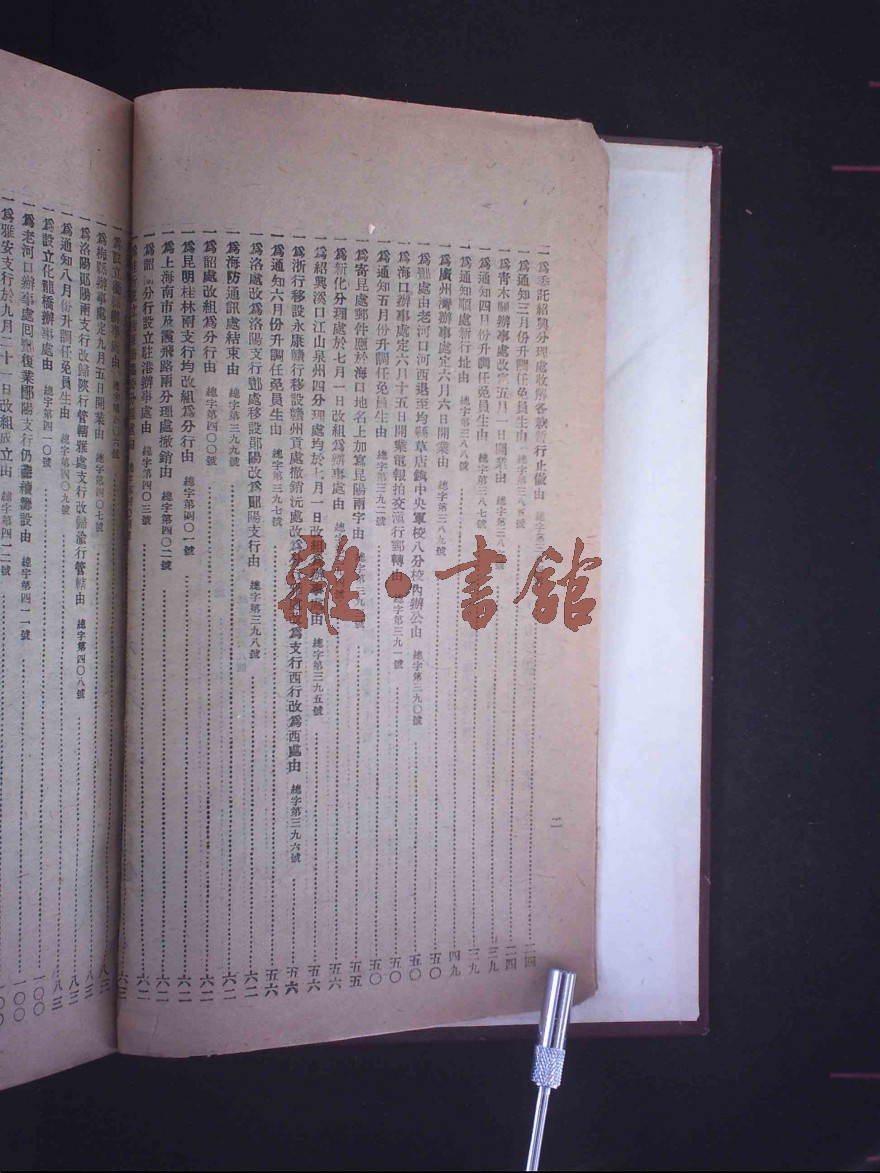 一爲委託紹興分理處收解各款暫行止做由 總字第三
一爲通知三月份升調任免員生由 總字第三八五號 二四
一爲青木關辦事處改定五月一日開業由 總字第三八 二四
一爲通知四月份升調任免員生由 總字第三八七號 三九
一爲通知順處新行址由 總字第三八八號 三九
一爲廣州灣辦事處定六月六日開業由 總字第三八九號 四九
一爲 處由老河口河西退至均縣草店鎮中央軍校八分校內辦公由 總字第三九〇號 五〇
一爲海口辦事處定六月十五日開業電報拍交滇行郵轉由 總字第三九一號 五〇
一爲通知五月份升調任免員生由 總字第三九二號 五〇
一爲寄昆處郵件應於海口地名上加寫昆陽兩字由 總字第三九 五〇
一爲新化分理處於七月一日改組爲辦事處由 總字 五五
一爲紹興溪口江山泉州四分理處均於七月一日改組爲 由 總字第三九五號 五六
一爲浙行移設永康贛行移設贛州貢處撤銷沅處改爲分 改爲支行西行改爲西處由 總字第三九六號 五六
一爲通知六月份升調任免員生由 總字第三九七號 五六
一爲洛處改爲洛陽支行鄧處移設鄖陽改爲鄖陽支行由 總字第三九八號 六二
一爲海防通訊處結束由 總字第三九九號 六二
一爲韶處改組爲分行由 總字第四〇〇號 六二
一爲昆明桂林兩支行均改組爲分行由 總字第四〇一號 六二
一爲上海南市及霞飛路兩分理處撤銷由 總字第四〇二號 六二
一爲韶 分行設立駐港辦事處由 總字第四〇三號 六二
六三
一爲設立 辦事處由 總字第四〇六號 八三
一爲梅縣辦事處定九月五日開業由 總字第四〇七號 八三
一爲洛陽鄖陽兩支行改歸陝行管轄雅處支行改歸渝行管轄由 總字第四〇八號 八三
一爲通知八月份升調任免員生由 總字第四〇九號 八三
一爲設立化龍橋辦事處由 總字第四一〇號 一〇〇
一爲老河口辦事處囘 復業鄖陽支行仍繼續籌設由 總字第四一一號 一〇〇
一爲雅安支行於九月二十一日改組成立由 總字第四一二號 一〇〇
二
雜·書館